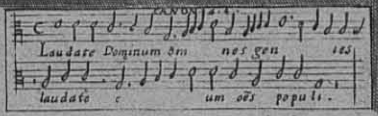 CANON 4. 1.
Laudate Dominum õm nes gen tes
laudate e um oẽs populi.